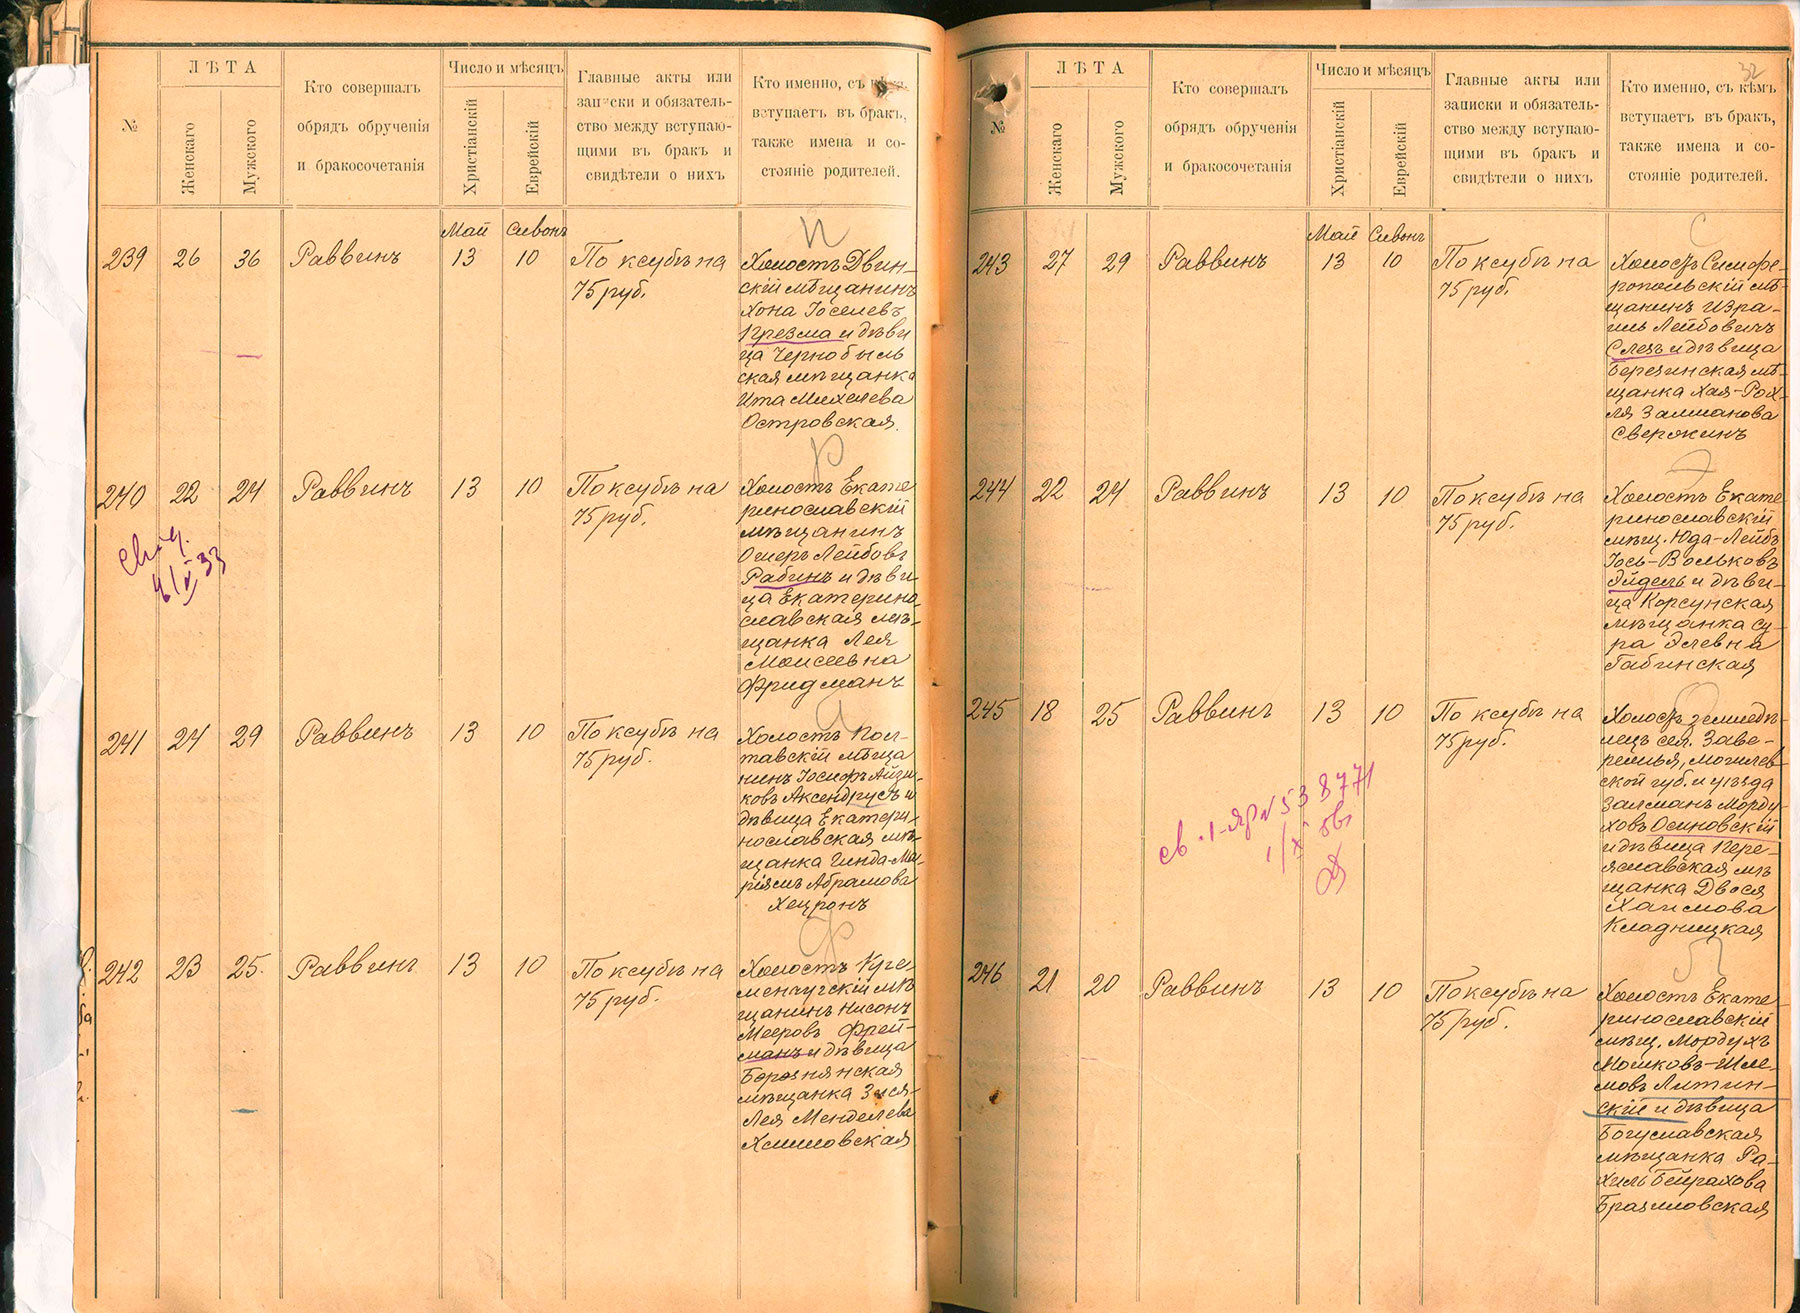 №
ЛѢТА
Женскаго
Мужского
Кто совершалъ
обрядъ обрученія
и бракосочетанія
Число и мѣсяцъ
Христіанскій
Еврейскій
Главные акты или
записки и обязатель-
ство между вступаю-
щими въ бракъ и
свидѣтели о нихъ
Кто именно, съ кѣмъ
вступаетъ въ бракъ,
также имена и со-
стояніе родителей.
Май Сивонъ
239 26 36 Раввинъ 13 10
По ксубѣ на
75 руб.
П
Холостъ Двин-
скій мѣщанинъ
Хона Іоселевъ
Презма и дѣви
ца Чернобыль
ская мѣщанка
Ита Михелева
Островская.
240 22 24 Раввинъ 13 10
По ксубѣ на
75 руб.
Р
Холостъ Екате
ринославскій
мѣщанинъ
Ошеръ Лейбовъ
Рабинъ и дѣви
ца Екатерино-
славская мѣ-
щанка Лея
Моисеевна
Фридманъ
33
241 24 29 Раввинъ 13 10
По ксубѣ на
75 руб.
Холостъ Пол-
тавскій мѣща
нинъ Іосифъ Айзи-
ковъ Аксендрусъ и
дѣвица Екатери-
нославская мѣ-
щанка Гинда-Ма-
ріямъ Абрамова
Хецронъ
242 23 25. Раввинъ 13 10
По ксубѣ на
75 руб.
Ф
Холостъ Кре-
менчугскій мѣ
щанинъ Нисонъ
Мееровъ Фрей-
манъ и дѣвица
Борзнянская
мѣщанка Зися-
Лея Менделева
Хлимовская
32
№
ЛѢТА
Женскаго
Мужского
Кто совершалъ
обрядъ обрученія
и бракосочетанія
Число и мѣсяцъ
Христіанскій
Еврейскій
Главные акты или
записки и обязатель-
ство между вступаю-
щими въ бракъ и
свидѣтели о нихъ
Кто именно, съ кѣмъ
вступаетъ въ бракъ,
также имена и со-
стояніе родителей.
Май Сивонъ
243 27 29 Раввинъ 13 10
По ксубѣ на
75 руб.
С
Холостъ Симфе-
ропольскій мѣ-
щанинъ Изра-
иль Лейбовичъ
Слезъ и дѣвица
Березинская мѣ-
щанка Хая-Рох-
ля Залманова
Сверокинъ
244 22 24 Раввинъ 13 10
По ксубѣ на
75 руб.
Э
Холостъ Екате
ринославскій
мѣщ. Юда-Лейбъ
Іось-Вольковъ
Эйдель и дѣви-
ца Корсунская
мѣщанка Су-
ра Элевна
Габинская
245 18 25 Раввинъ 13 10
По ксубѣ на
75 руб.
О
Холостъ землед ѣ-
лецъ сел. Заве-
ремья, Могилев-
ской губ. и уѣзда
Залманъ Морду-
ховъ Осиновскій
и дѣвица Пере-
яславская мѣ
щанка Двося
Хаимова
Кладницкая
538771
246 21 20 Раввинъ 13 10
По ксубѣ на
75 руб.
Л
Холостъ Екате-
ринославскій
мѣщ. Мордухъ
Мошковъ-Шле-
мовъ Литин-
скій и дѣвица
Богуславская
мѣщанка Ра-
хиль Бейрахова
Бразиловская